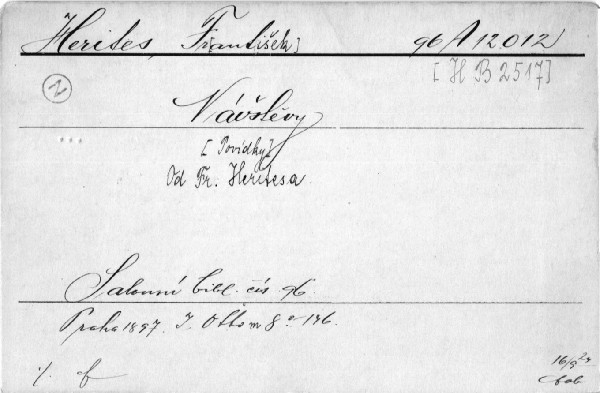 Herites, František] 96 A 12012
[H B 2517]
N
Návštěvy
[Povídky]
Od Fr. Heritesa
Salonní bibl. čís 96.
Praha 1897. J. Otto m 8° 146.
%. f 16/9 24